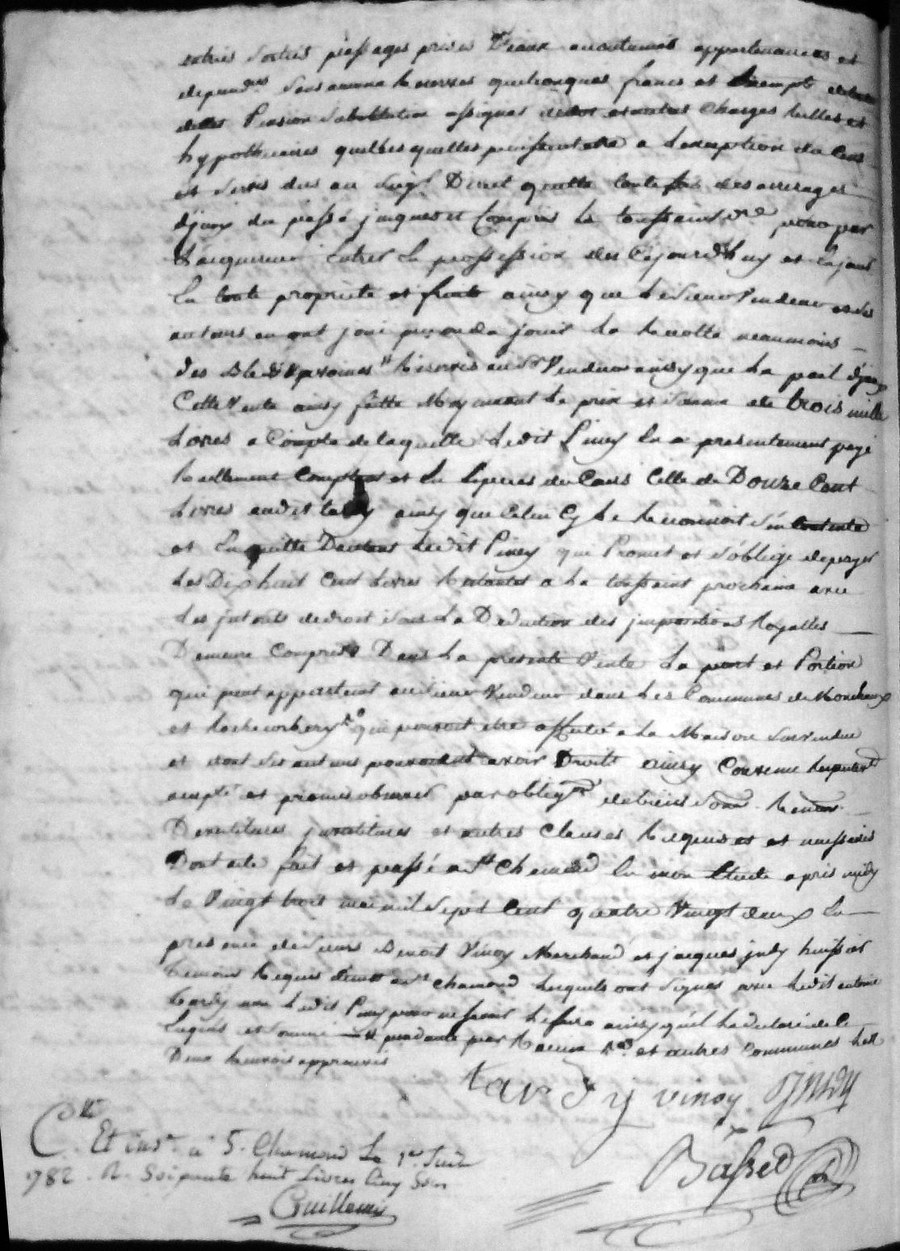 entrés sortiés passages prises d'eaux accoutumés appartenances et
depend.ces sans aucune reserves quelconques francs et exempt de
dettes Pension substitution assignat de dot et autres charges réelles et
hypothecaires quelles quelles puissent etre a l'exeption du Cens
et servis dus au Seig.r Direct quitte toutefois des arrerages
d'jceux du passé jusques et Compris la toussaint d.re pour par
L'acquereur Entrer En possession des Cejourd'huy et en jouir
En toute proprieté et fruits ainsy que le sieur Vendeur et ses
auteurs en ont joui pu ou du jouir La Recolte neanmoins
des Bleds
Cette Vente ainsy faitte Moyennant le prix et somme de trois mille
Livres a Compte de laquelle ledit Piney En a presentement payé
Reellement Comptant et En Especes du Cours Celle de Douze Cent
Livres audit tardy ainsy que Celui Cy Le Reconnoit s'en Contente
et En quitte D'autant ledit Piney qui Promet et s'oblige de payer
Les Dixhuit Cent Livres Restantes a La toussaint prochaine avec
Les jnterets de droit sous La Deduction des jmpositions Royalles
Demeure Compris Dans La presente Vente La part et Portion
qui peut appartenir au sieur Vendeur dans Les Communes de
et qui pouroit etre affectée a la Maison sus vendue
et dont ses auteurs pouroient avoir Droit ainsy Convenu
accepté et promis observer par oblig.on de biens soum. Renon.
Devetitures jnvetitures et autres Clauses Requises et necessaires
Dont acte fait et passé a S.t Chamond En mon Etude apres midy
Le Vingt trois mai mil sept cent quatre Vingt deux En
presence de sieurs Benoit Vinoy Marchand et jacques july huissier
temoins Requis demt a S.t Chamond Lesquels ont signés avec ledit antoine
tardy non ledit Piney pour ne savoir le faire ainsy qu'il l'a declaré de Ce
Enquis et sommé et autres Communes
Deux Renvois approuvés
tardy vinoy july
Basset
C.lé Et ins.é a S. Chamond Le 1.er Juin
1782. R. Soixante huit Livres Cinq Sous
Guillemin